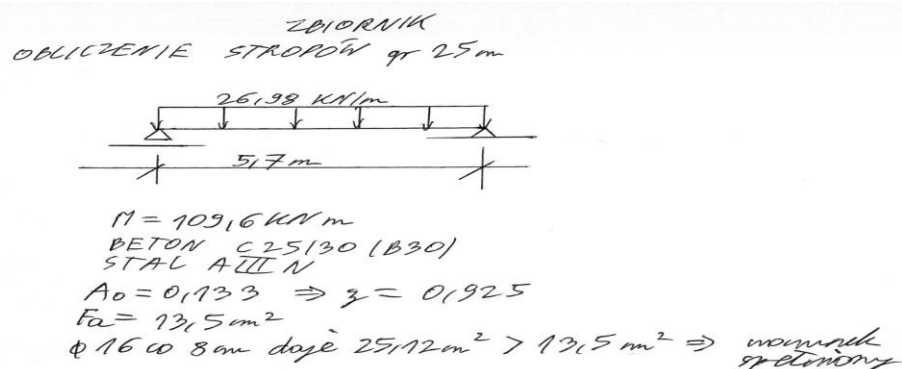 ZBIORNIK
OBLICZENIE STROPÓW gr 25 cm
26,98 KN/m
5,7 m
M = 109,6 KN m
BETON C25/30 (B30)
STAL A III N
Ao = 0,133 => ʒ = 0,925
Fa = 13,5 cm²
φ 16 co 8 cm daje 25,12 cm² > 13,5 cm² => warunek
spełniony